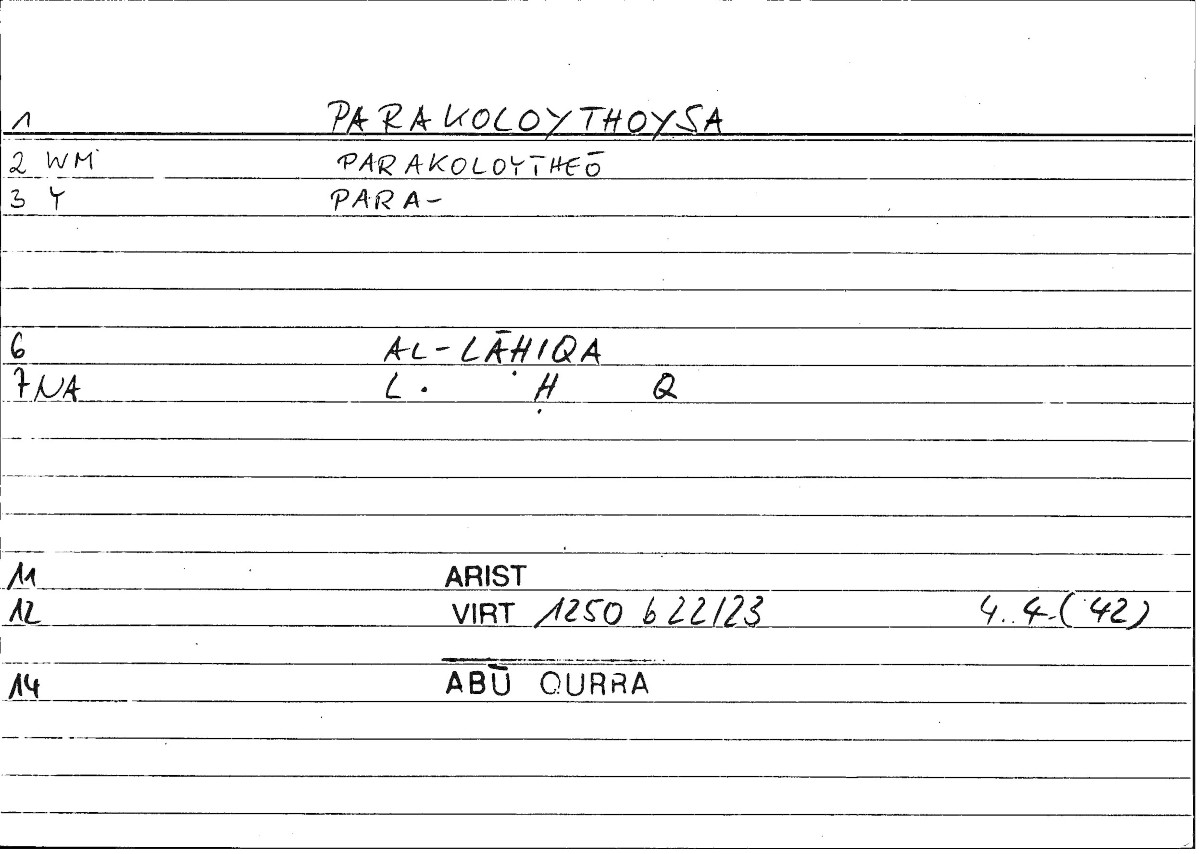 1 PARAKOLOYTHOYSA
2 WM PARAKOLOYTHEŌ
3 Y PARA-
6 AL-LĀḤIQA
7 NA L . Ḥ Q
11 ARIST
12 VIRT 1250 b 22/23 4..4-(42)
14 ABŪ QURRA